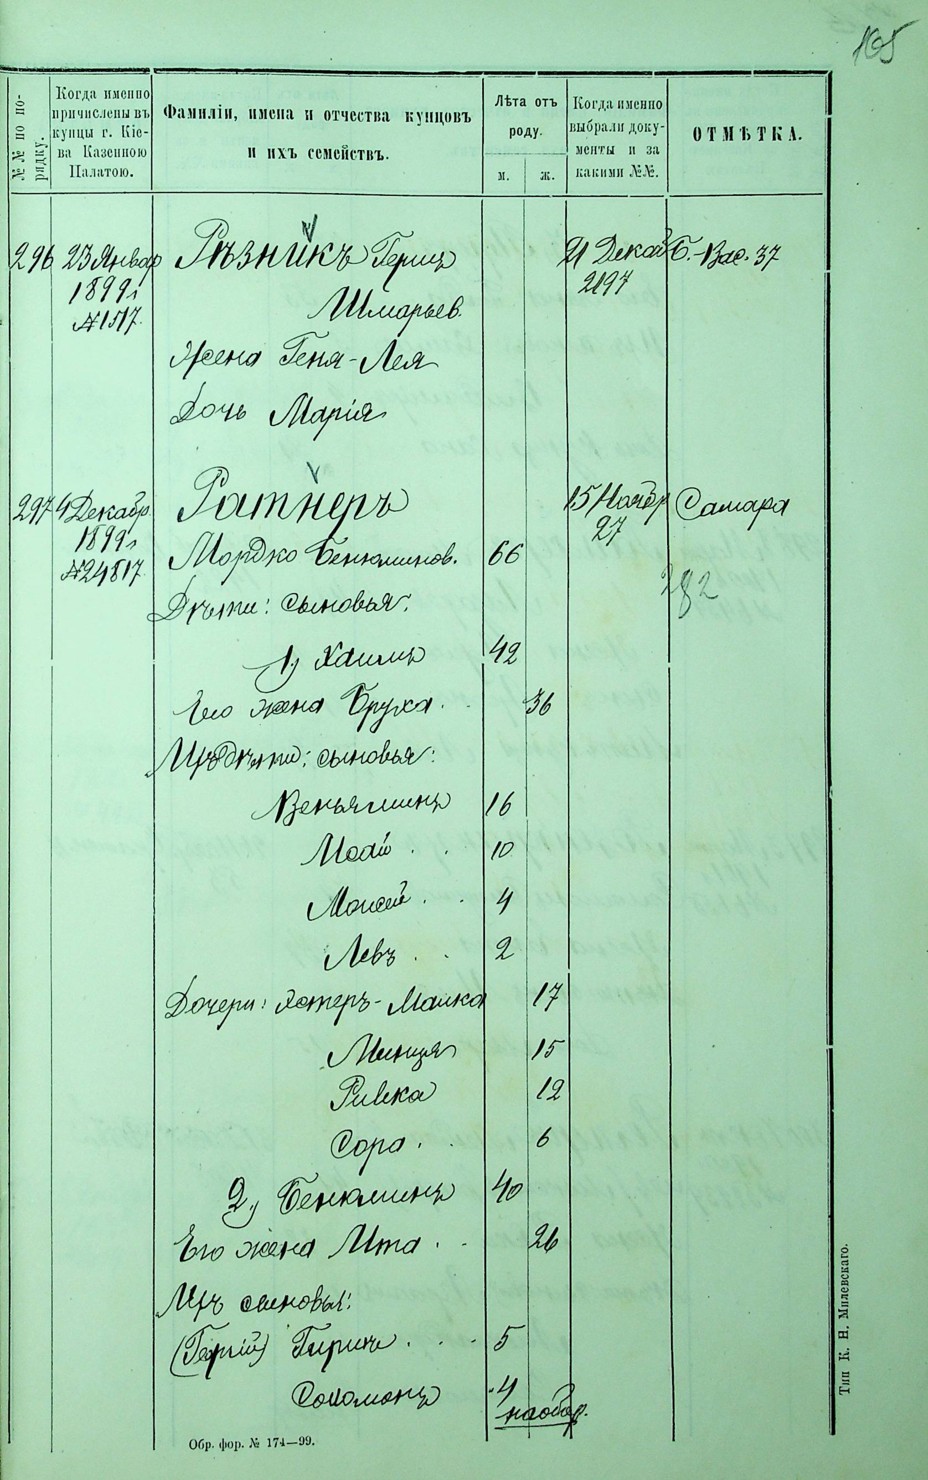 165
№№ по по-
рядку.
Когда именно
причислены въ
купцы г. Кіе-
ва Казенною
Палатою.
Фамиліи, имена и отчества купцовъ
и ихъ семействъ.
Лѣта отъ
роду.
м. ж.
Когда именно
выбрали доку-
менты и за
какими №№.
ОТМѢТКА.
296 23 Январ Рѣзникъ Герцъ 21 Декаб Б.-Вас. 37
1899 г. Шмарьев. 2197
№ 1517.
Жена Геня-Лея
Дочь Марія
297 4 Декабр. Ратнеръ 15 Ноябр Самара
1899 г. 27
№ 24817. Мордко Бенюминов. 66
282
Дѣти: сыновья:
1) Хаимъ 42
Его жена Бруха 36
Ихъ дѣти: сыновья:
Веньяминъ 16
10
Моисей 4
Левъ 2
Дочери: Эстеръ-Малка 17
15
Ривка 12
Сора 6
2) Бенюминъ 40
Его жена Ита 26
Ихъ сыновья:
(Георгій) Гиршъ 5
Соломонъ 4
наобор.
Обр. фор. № 174—99.
Тип К. Н. Милевскаго.